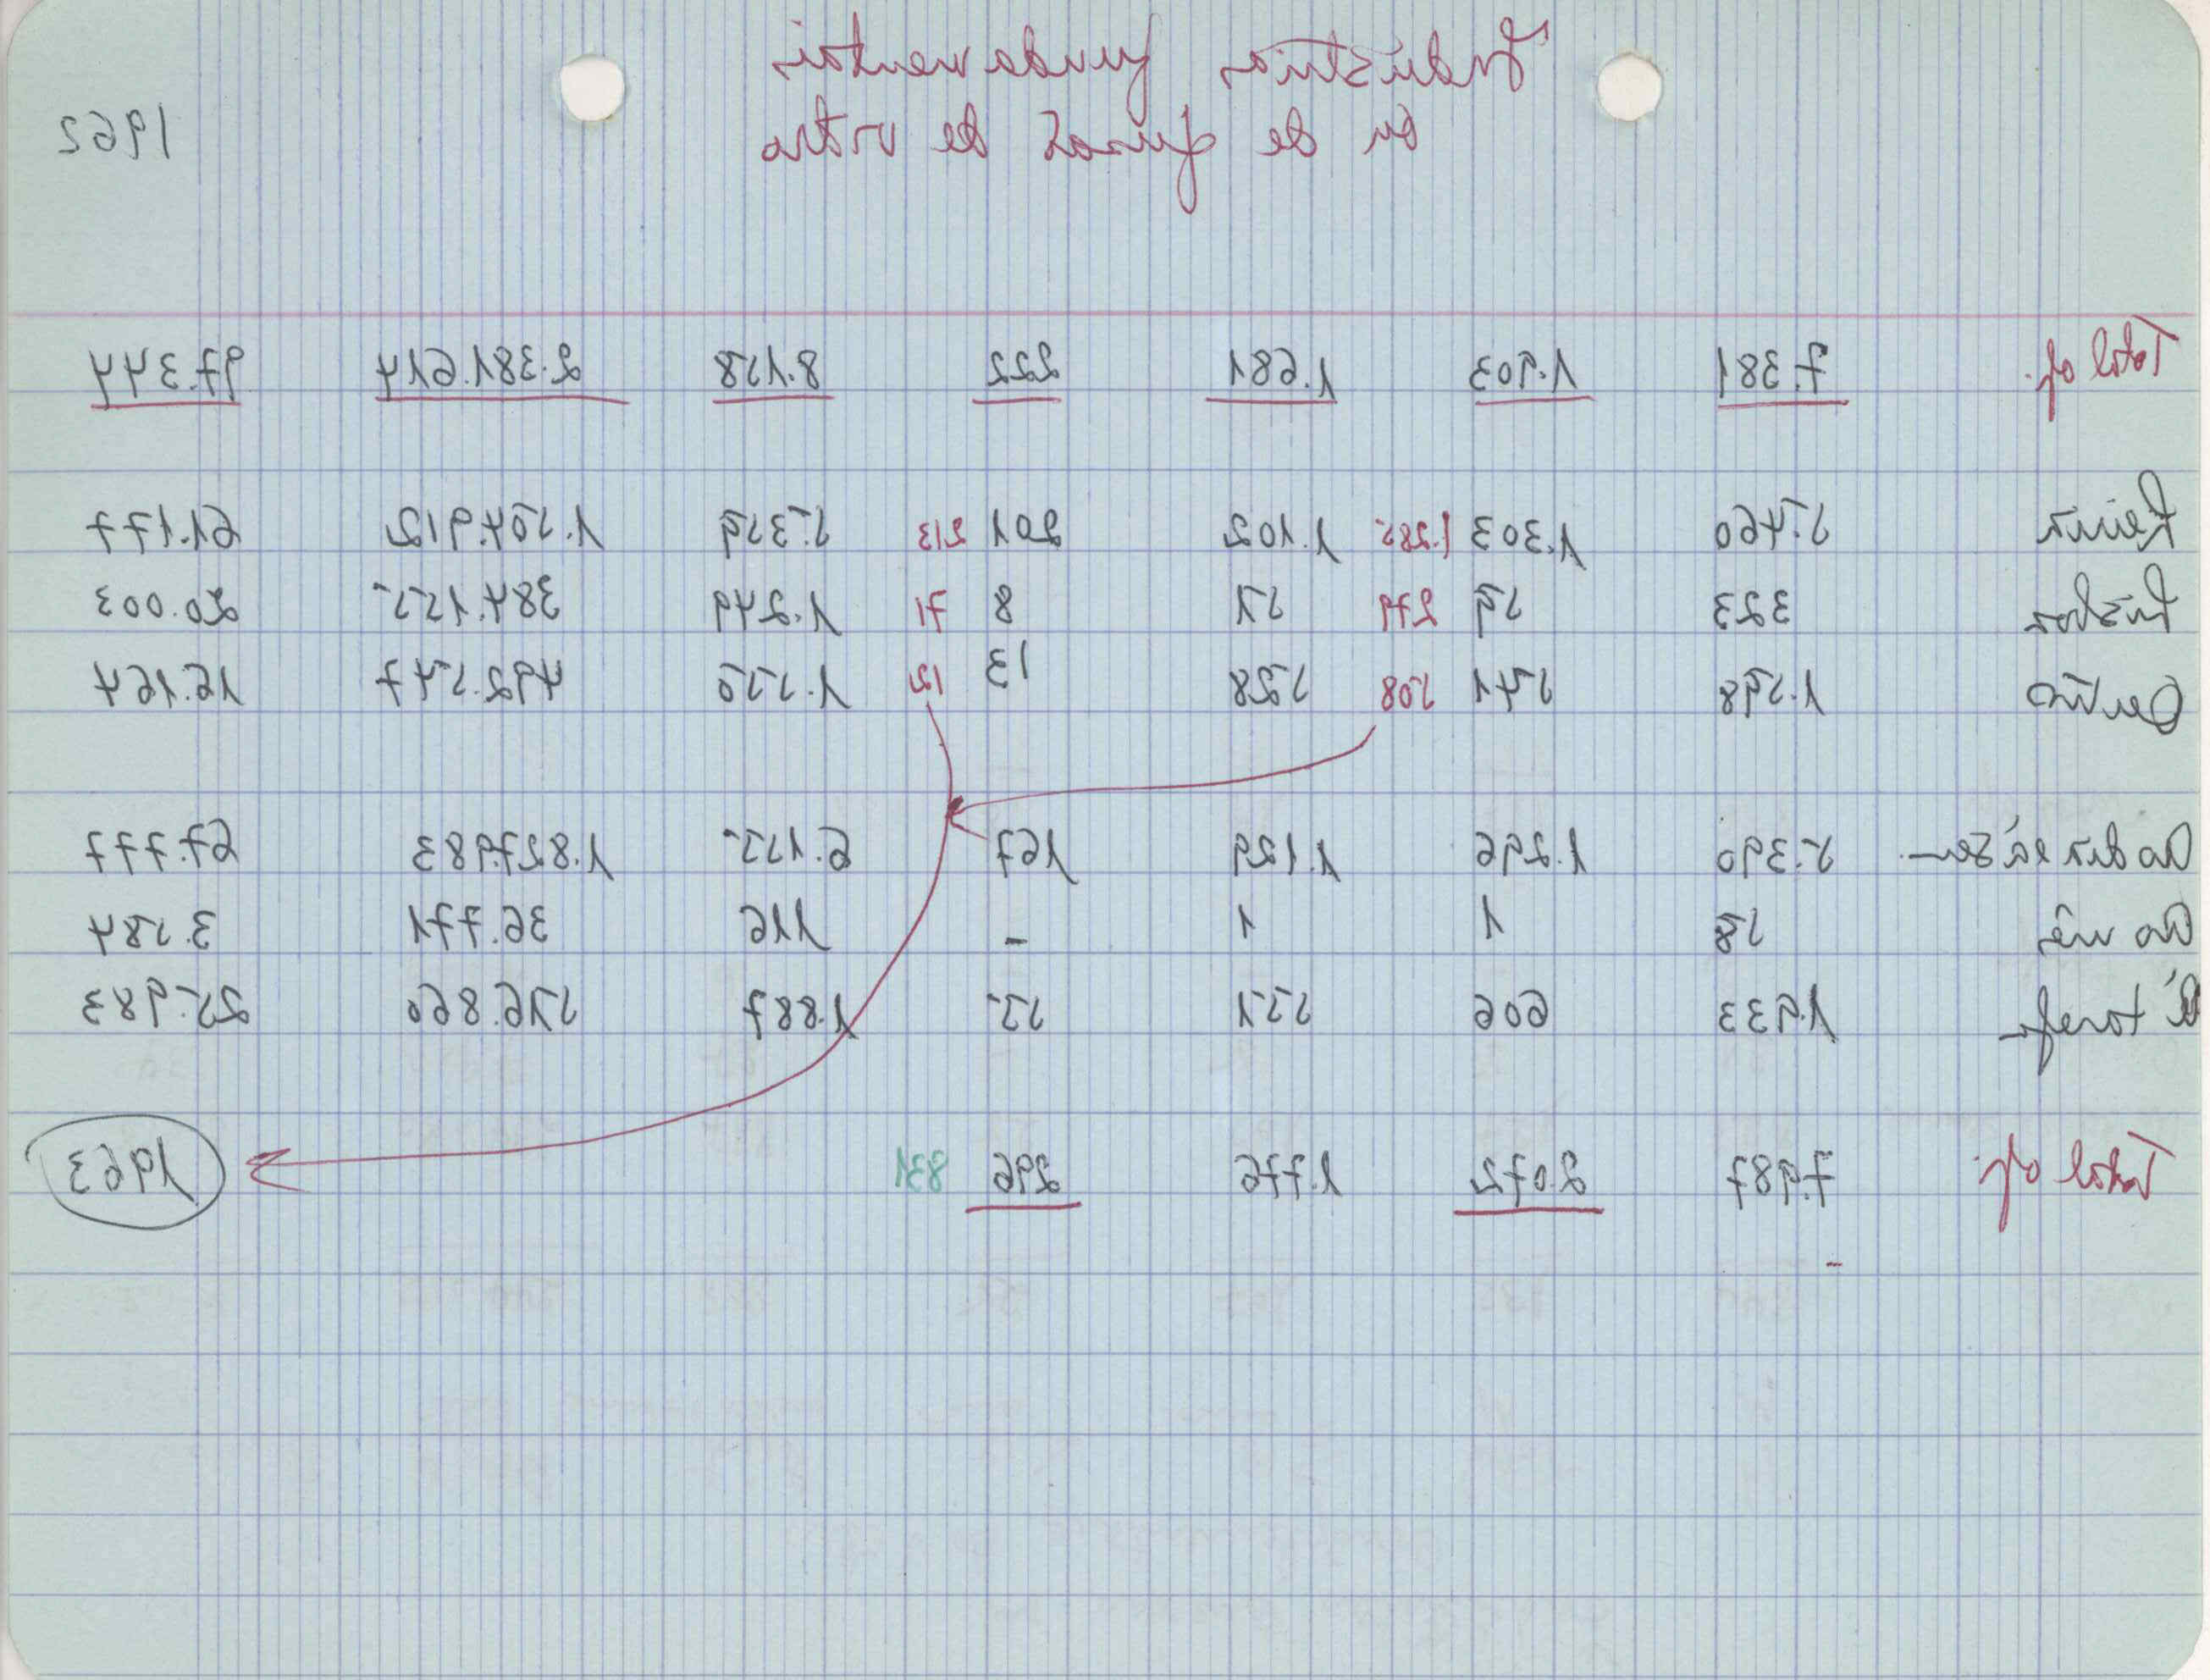 Indústrias fundamentais
ou de de vidro
1962
Total of. 7.381 1.903 1.681 222 8.158 2.381.614 97.344
Leiria 5.460 1.303 1.285 1.102 201 213 5.359 1.504.912 61.177
Lisboa 323 59 279 51 8 71 1.249 384.155 20.003
Outros 1.598 541 508 528 13 12 1.550 492.547 16.164
Ao dia e à sem— 5.390 1.296 1.129 167 6.155 1.827.983 67.777
Ao mês 58 1 1 - 116 36.771 3.584
À tarefa 1.933 606 551 55 1.887 516.860 25.983
Total of. 7.987 2.072 1.776 296 831 1963